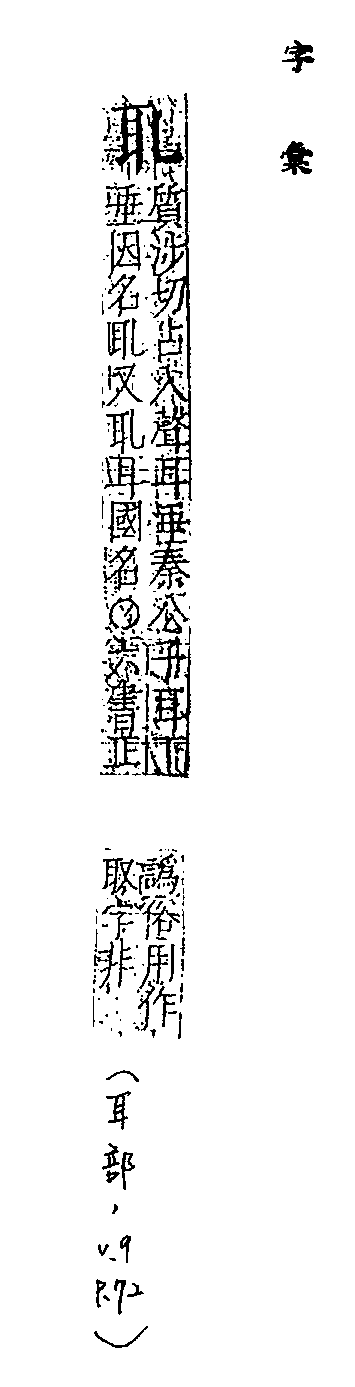 字彙
耴
質涉切占入聲耳垂秦公子耳下
垂因名耴又耴耳國名〇六書正
譌俗用作
取字非
(耳部, v.9 P.72)